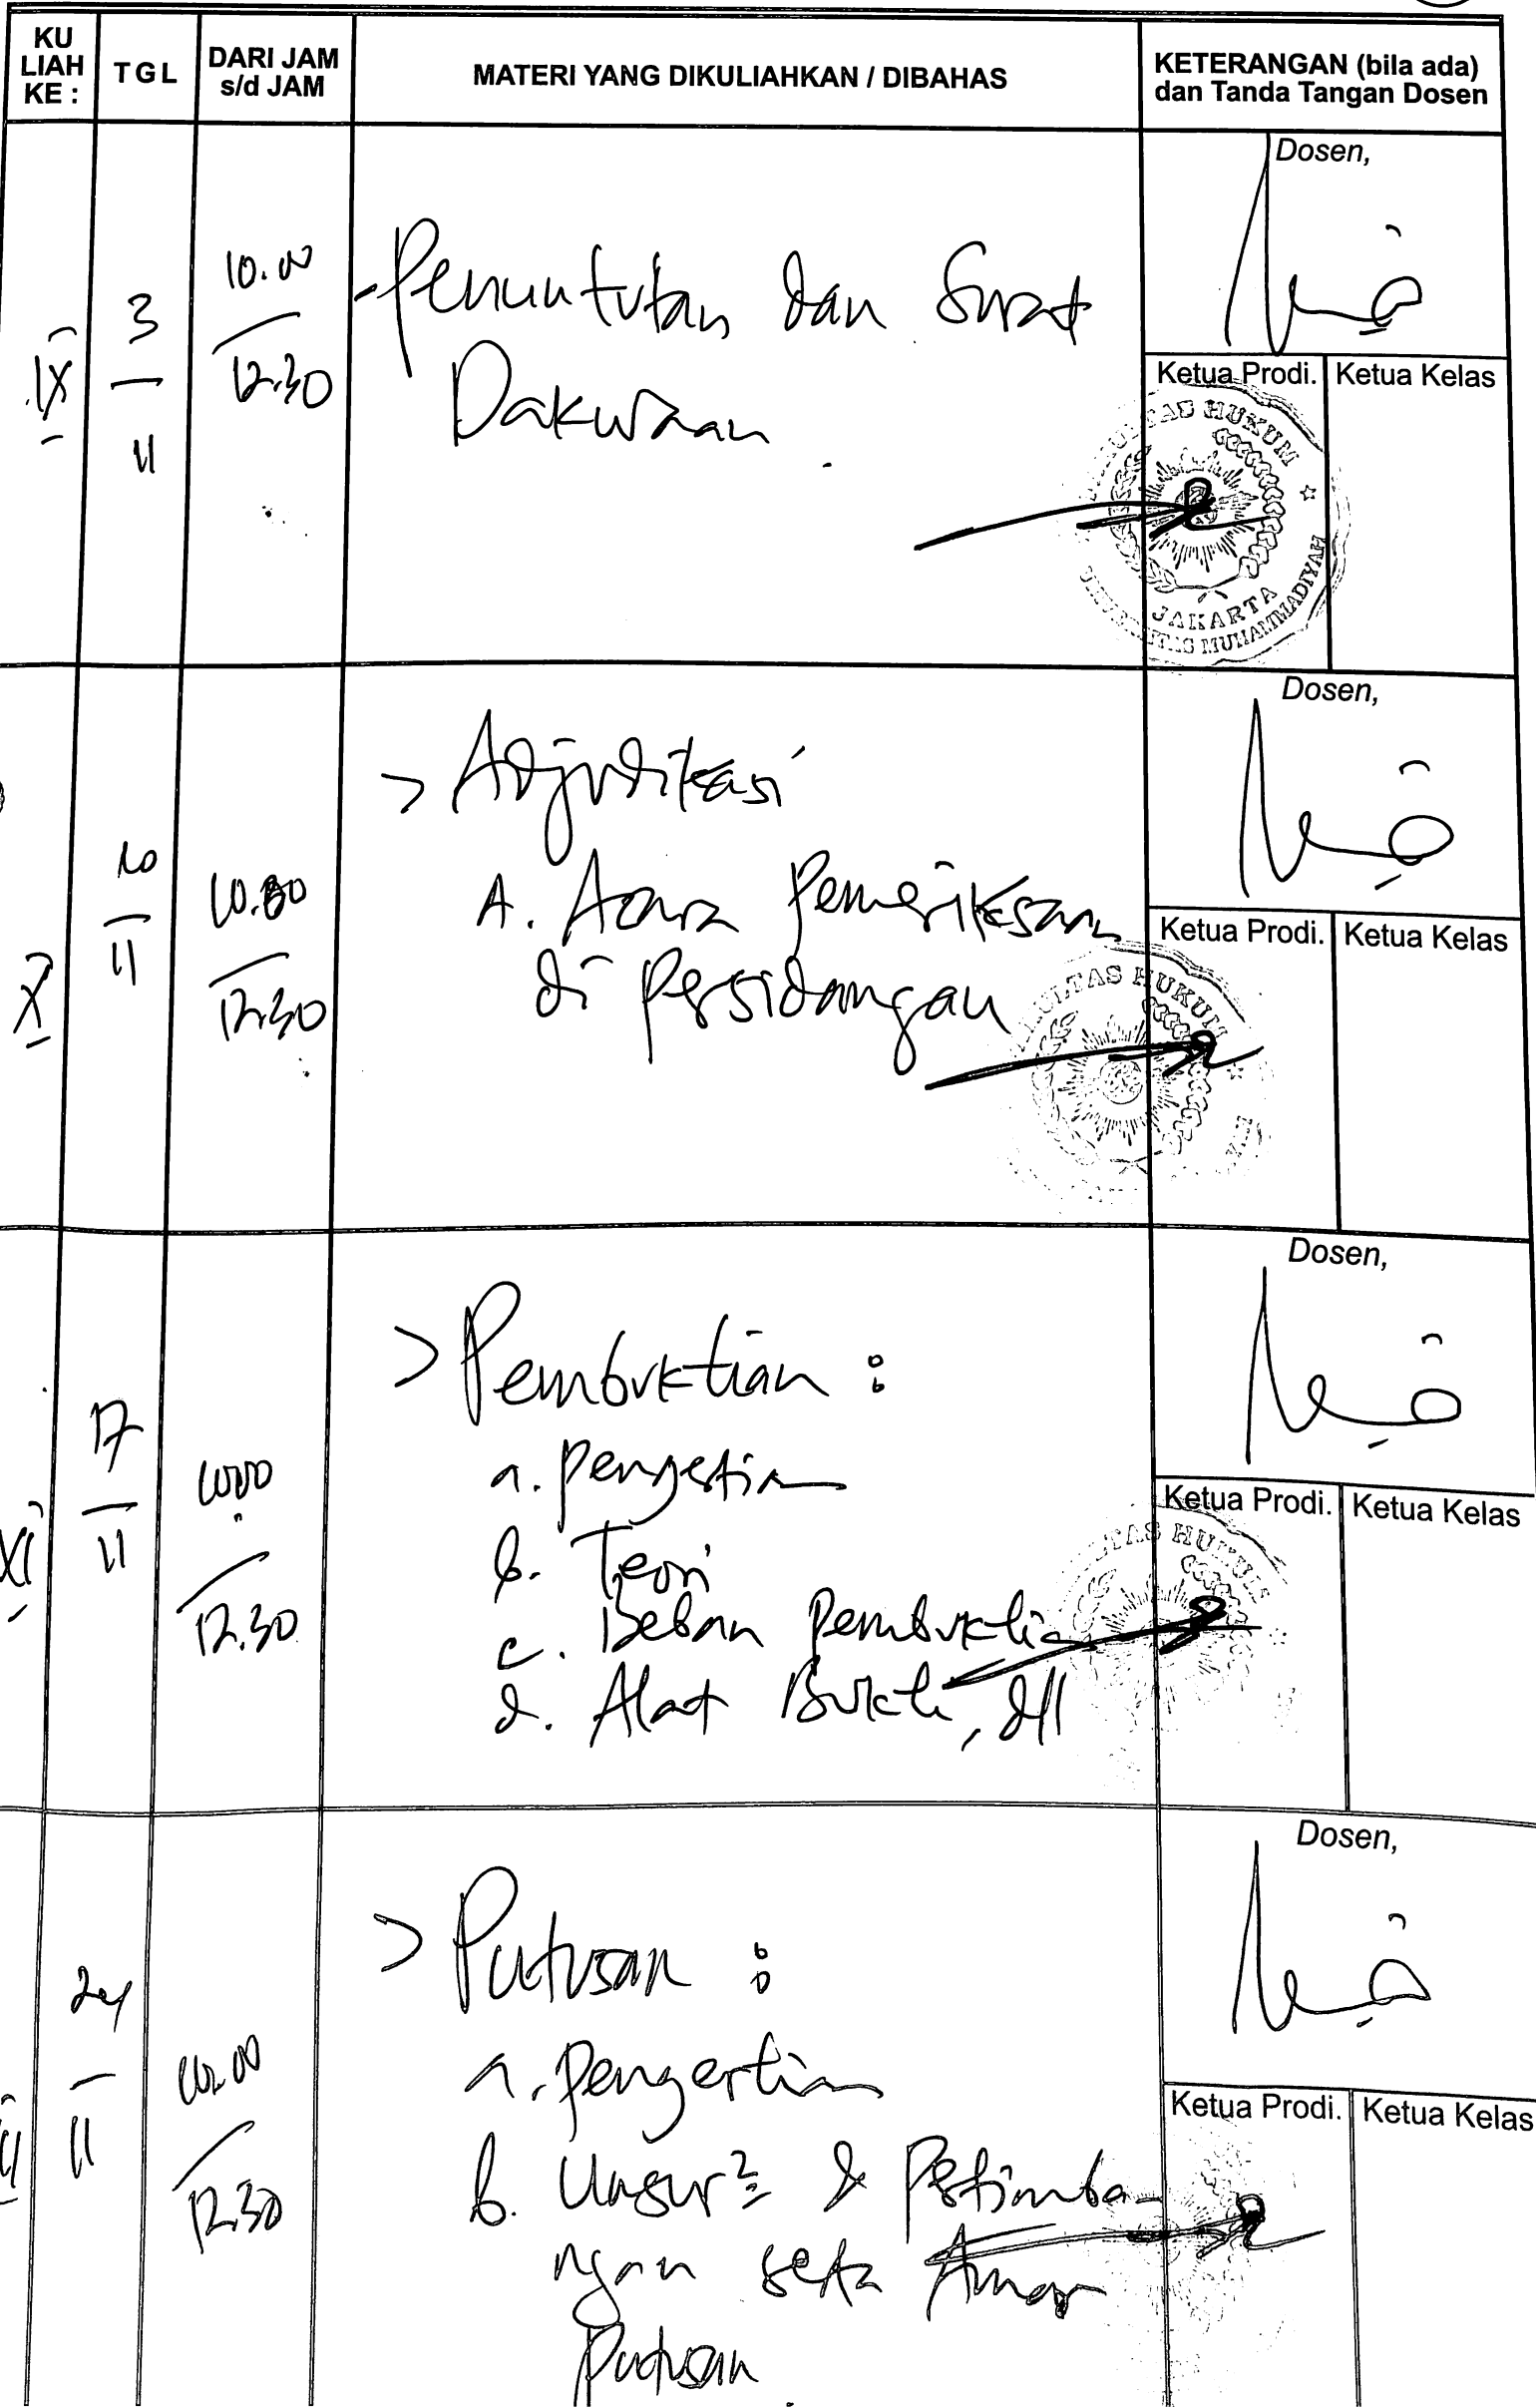 KU
LIAH
KE :
TGL
DARI JAM
s/d JAM
MATERI YANG DIKULIAHKAN / DIBAHAS
KETERANGAN (bila ada)
dan Tanda Tangan Dosen
IX
3
11
10.00
12.30
- Penuntutan dan Surat
Dakwaan.
Dosen,
Ketua Prodi.
Ketua Kelas
FAKULTAS HUKUM
JAKARTA
UNIVERSITAS MUHAMMADIYAH
X
10
11
10.00
12.30
> Adjudikasi
A. Acara Pemeriksaan
di Persidangan
Dosen,
Ketua Prodi.
Ketua Kelas
FAKULTAS HUKUM
XI
17
11
10.00
12.30
> Pembuktian :
a. Pengertian
b. Teori
c. Beban Pembuktian
d. Alat Bukti, dll
Dosen,
Ketua Prodi.
Ketua Kelas
TAS HUKUM
24
11
10.00
12.30
> Putusan :
a. Pengertian
b. Unsur² & Pertimba-
ngan serta Amar
Putusan.
Dosen,
Ketua Prodi.
Ketua Kelas